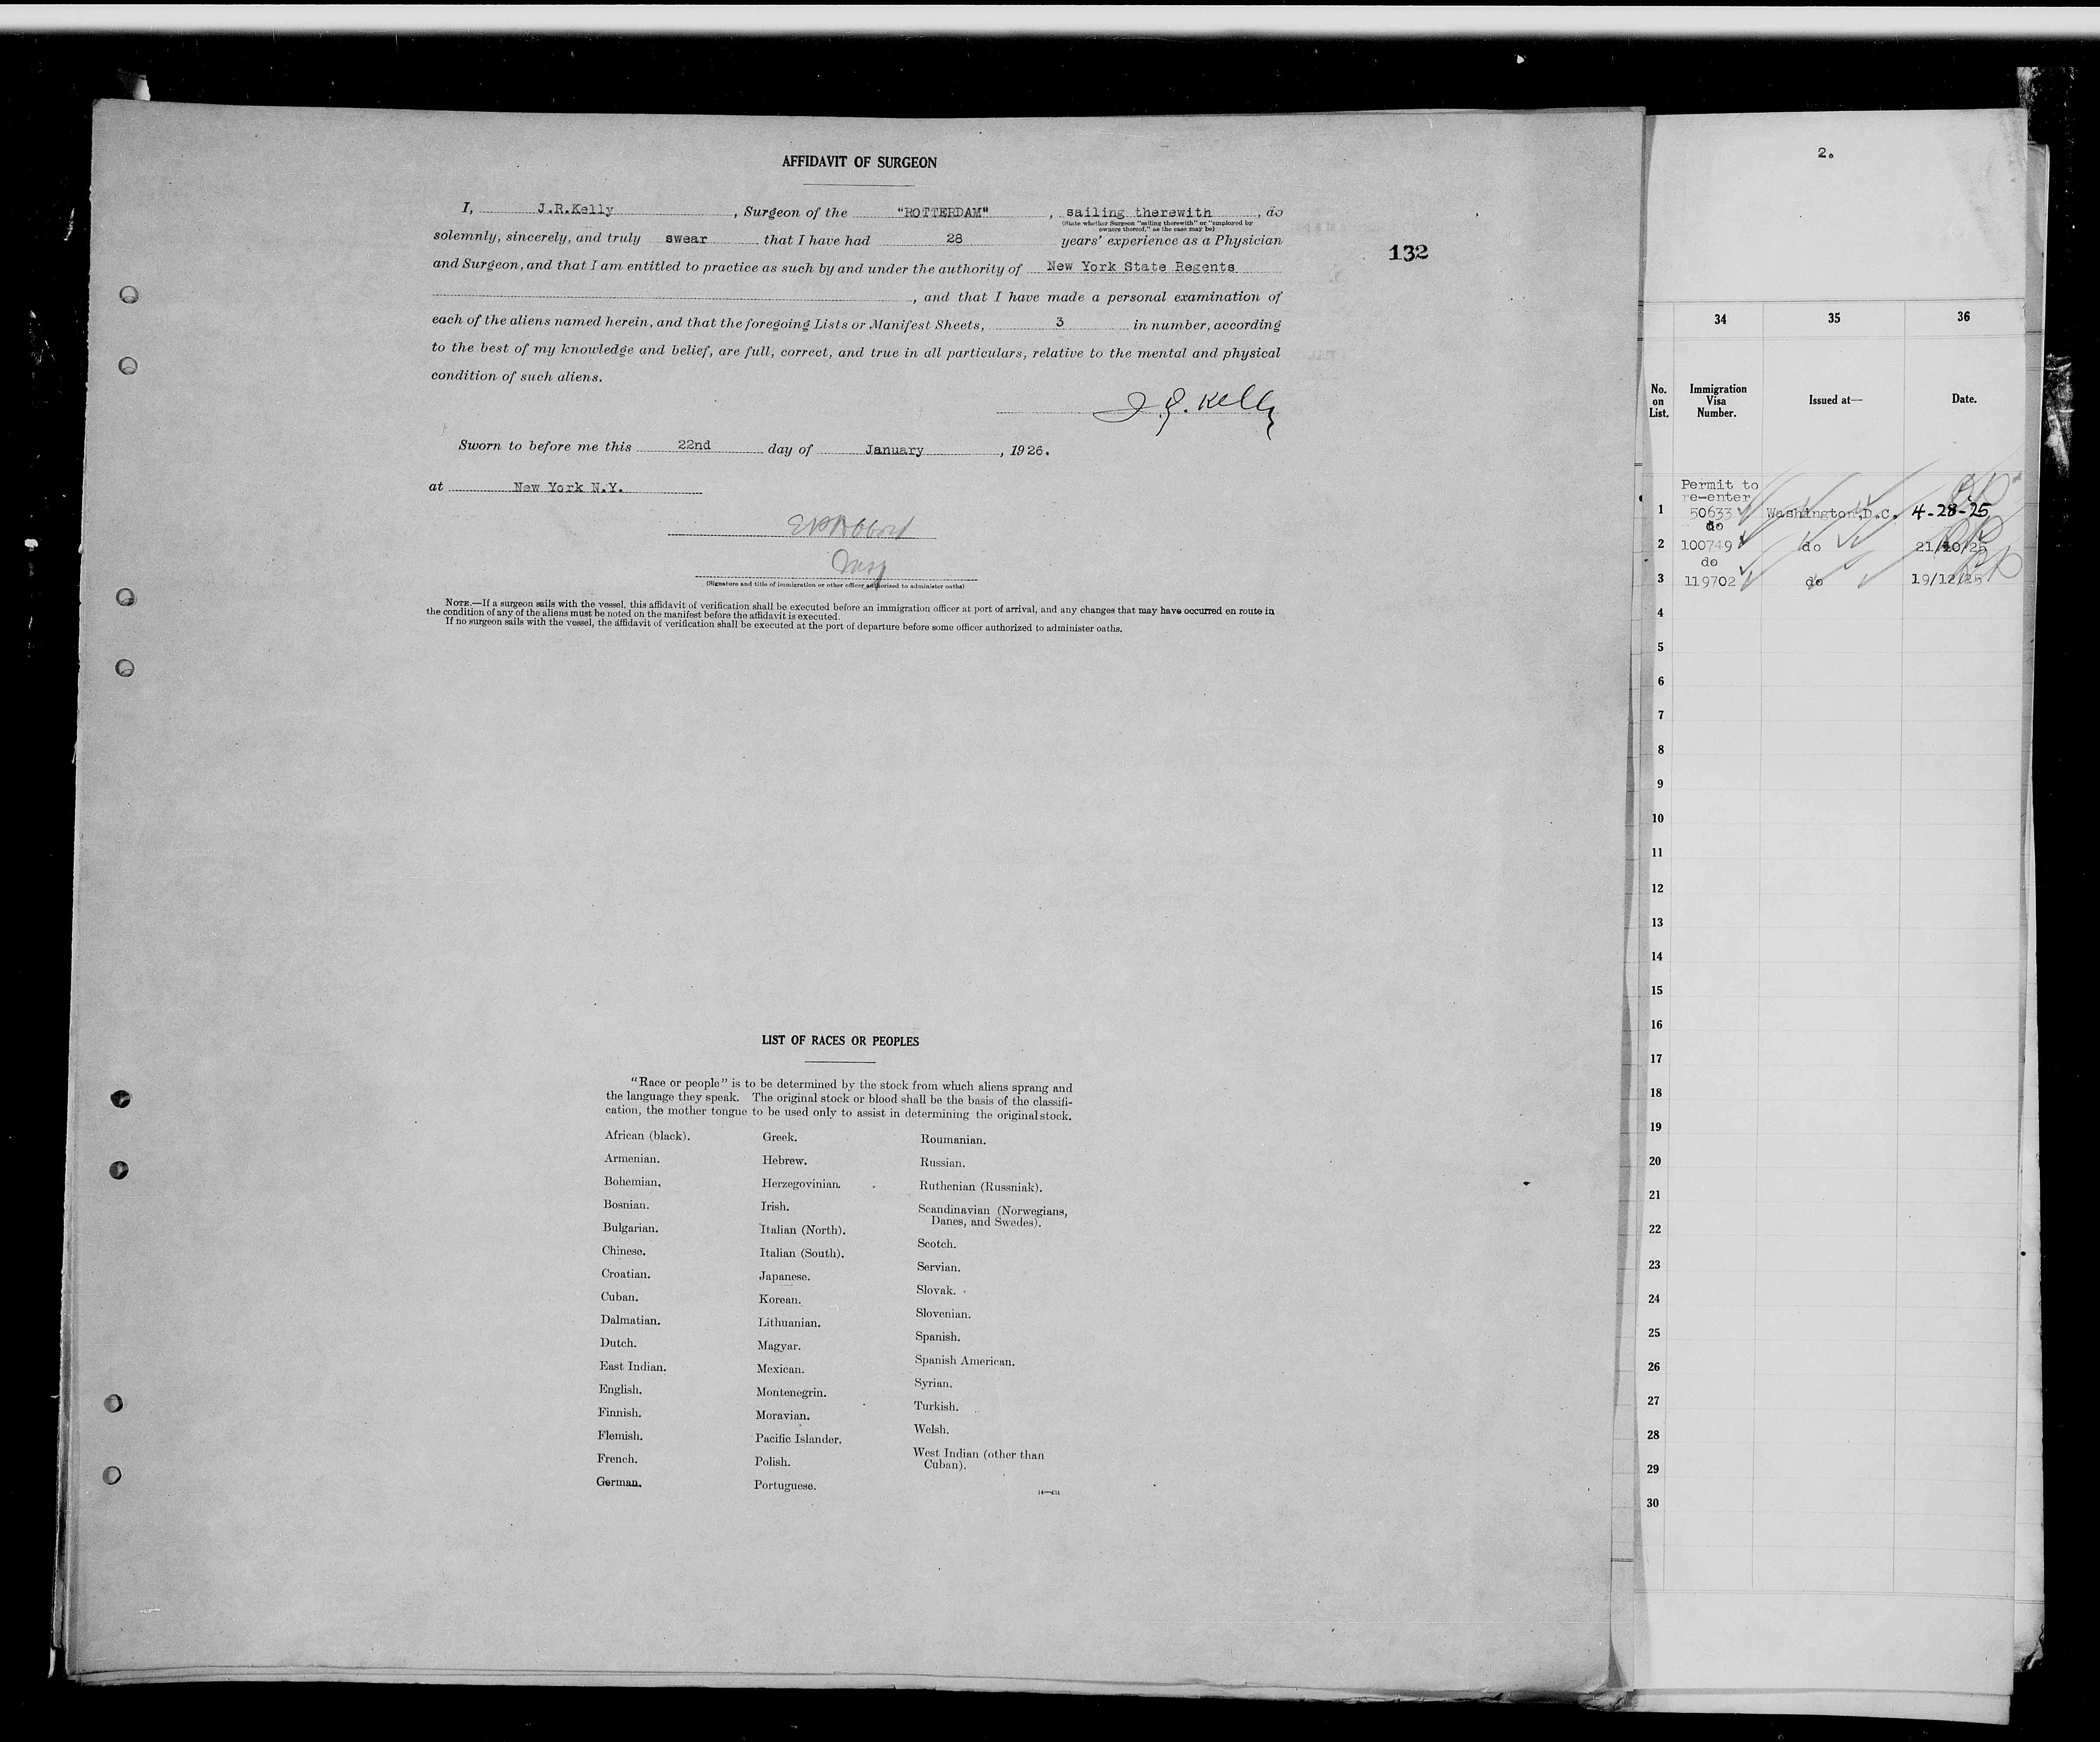 AFFIDAVIT OF SURGEON
I, J.R.Kelly, Surgeon of the "ROTTERDAM", sailing therewith, do
(State whether Surgeon "sailing therewith" or "employed by
owners thereof," as the case may be)
solemnly, sincerely, and truly swear that I have had 28 years' experience as a Physician
and Surgeon, and that I am entitled to practice as such by and under the authority of New York State Regents
, and that I have made a personal examination of
each of the aliens named herein, and that the foregoing Lists or Manifest Sheets, 3 in number, according
to the best of my knowledge and belief, are full, correct, and true in all particulars, relative to the mental and physical
condition of such aliens.
J. R. Kelly
Sworn to before me this 22nd day of January, 1926.
at New York N.Y.
Insp
(Signature and title of immigration or other officer authorized to administer oaths)
NOTE.—If a surgeon sails with the vessel, this affidavit of verification shall be executed before an immigration officer at port of arrival, and any changes that may have occurred en route in
the condition of any of the aliens must be noted on the manifest before the affidavit is executed.
If no surgeon sails with the vessel, the affidavit of verification shall be executed at the port of departure before some officer authorized to administer oaths.
132
LIST OF RACES OR PEOPLES
"Race or people" is to be determined by the stock from which aliens sprang and
the language they speak. The original stock or blood shall be the basis of the classifi-
cation, the mother tongue to be used only to assist in determining the original stock.
African (black).
Armenian.
Bohemian.
Bosnian.
Bulgarian.
Chinese.
Croatian.
Cuban.
Dalmatian.
Dutch.
East Indian.
English.
Finnish.
Flemish.
French.
German.
Greek.
Hebrew.
Herzegovinian.
Irish.
Italian (North).
Italian (South).
Japanese.
Korean.
Lithuanian.
Magyar.
Mexican.
Montenegrin.
Moravian.
Pacific Islander.
Polish.
Portuguese.
Roumanian.
Russian.
Ruthenian (Russniak).
Scandinavian (Norwegians,
Danes, and Swedes).
Scotch.
Servian.
Slovak.
Slovenian.
Spanish.
Spanish American.
Syrian.
Turkish.
Welsh.
West Indian (other than
Cuban).
14—431
2.
34 35 36
No.
on
List.
Immigration
Visa
Number.
Issued at—
Date.
Permit to
re-enter
1 50633 Washington, D.C. 4-28-25
do
2 100749 do 21/10/25
do
3 119702 do 19/12/25
4
5
6
7
8
9
10
11
12
13
14
15
16
17
18
19
20
21
22
23
24
25
26
27
28
29
30